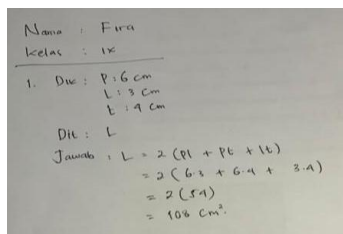 Nama : Fira
Kelas : IX
1. Dik : P : 6 cm
L : 3 cm
t : 4 cm
Dit : L
Jawab : L = 2 (Pl + Pt + lt)
= 2 (6.3 + 6.4 + 3.4)
= 2 (54)
= 108 cm².